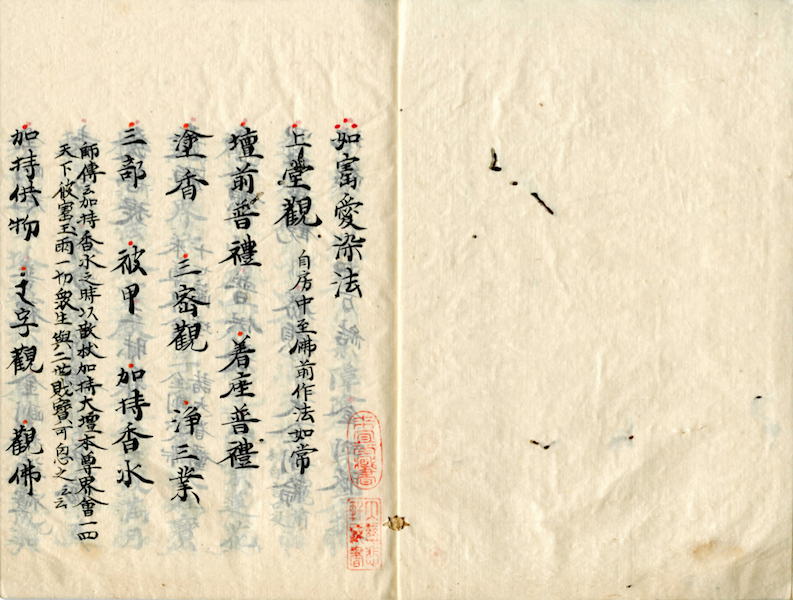 如宝愛染法
上堂觀 自房中至佛前作法如常
壇前普禮 着座普禮
塗香 三密觀 淨三業
三部 被甲 加持香水
師傳云加持香水之時以散杖加持大壇本尊界會一四
天下彼寶玉雨一切衆生與二世財寶可思之云云
加持供物 字觀 觀佛